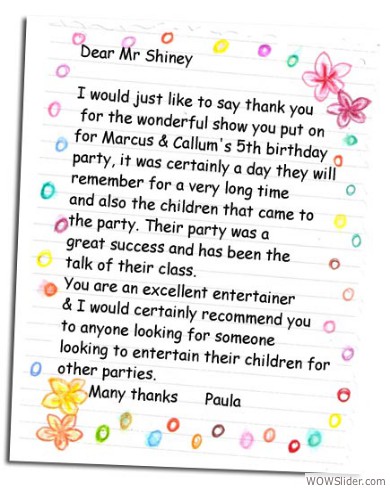 Dear Mr Shiney
I would just like to say thank you
for the wonderful show you put on
for Marcus & Callum's 5th birthday
party, it was certainly a day they will
remember for a very long time
and also the children that came to
the party. Their party was a
great success and has been the
talk of their class.
You are an excellent entertainer
& I would certainly recommend you
to anyone looking for someone
looking to entertain their children for
other parties.
Many thanks Paula
WOWSlider.com